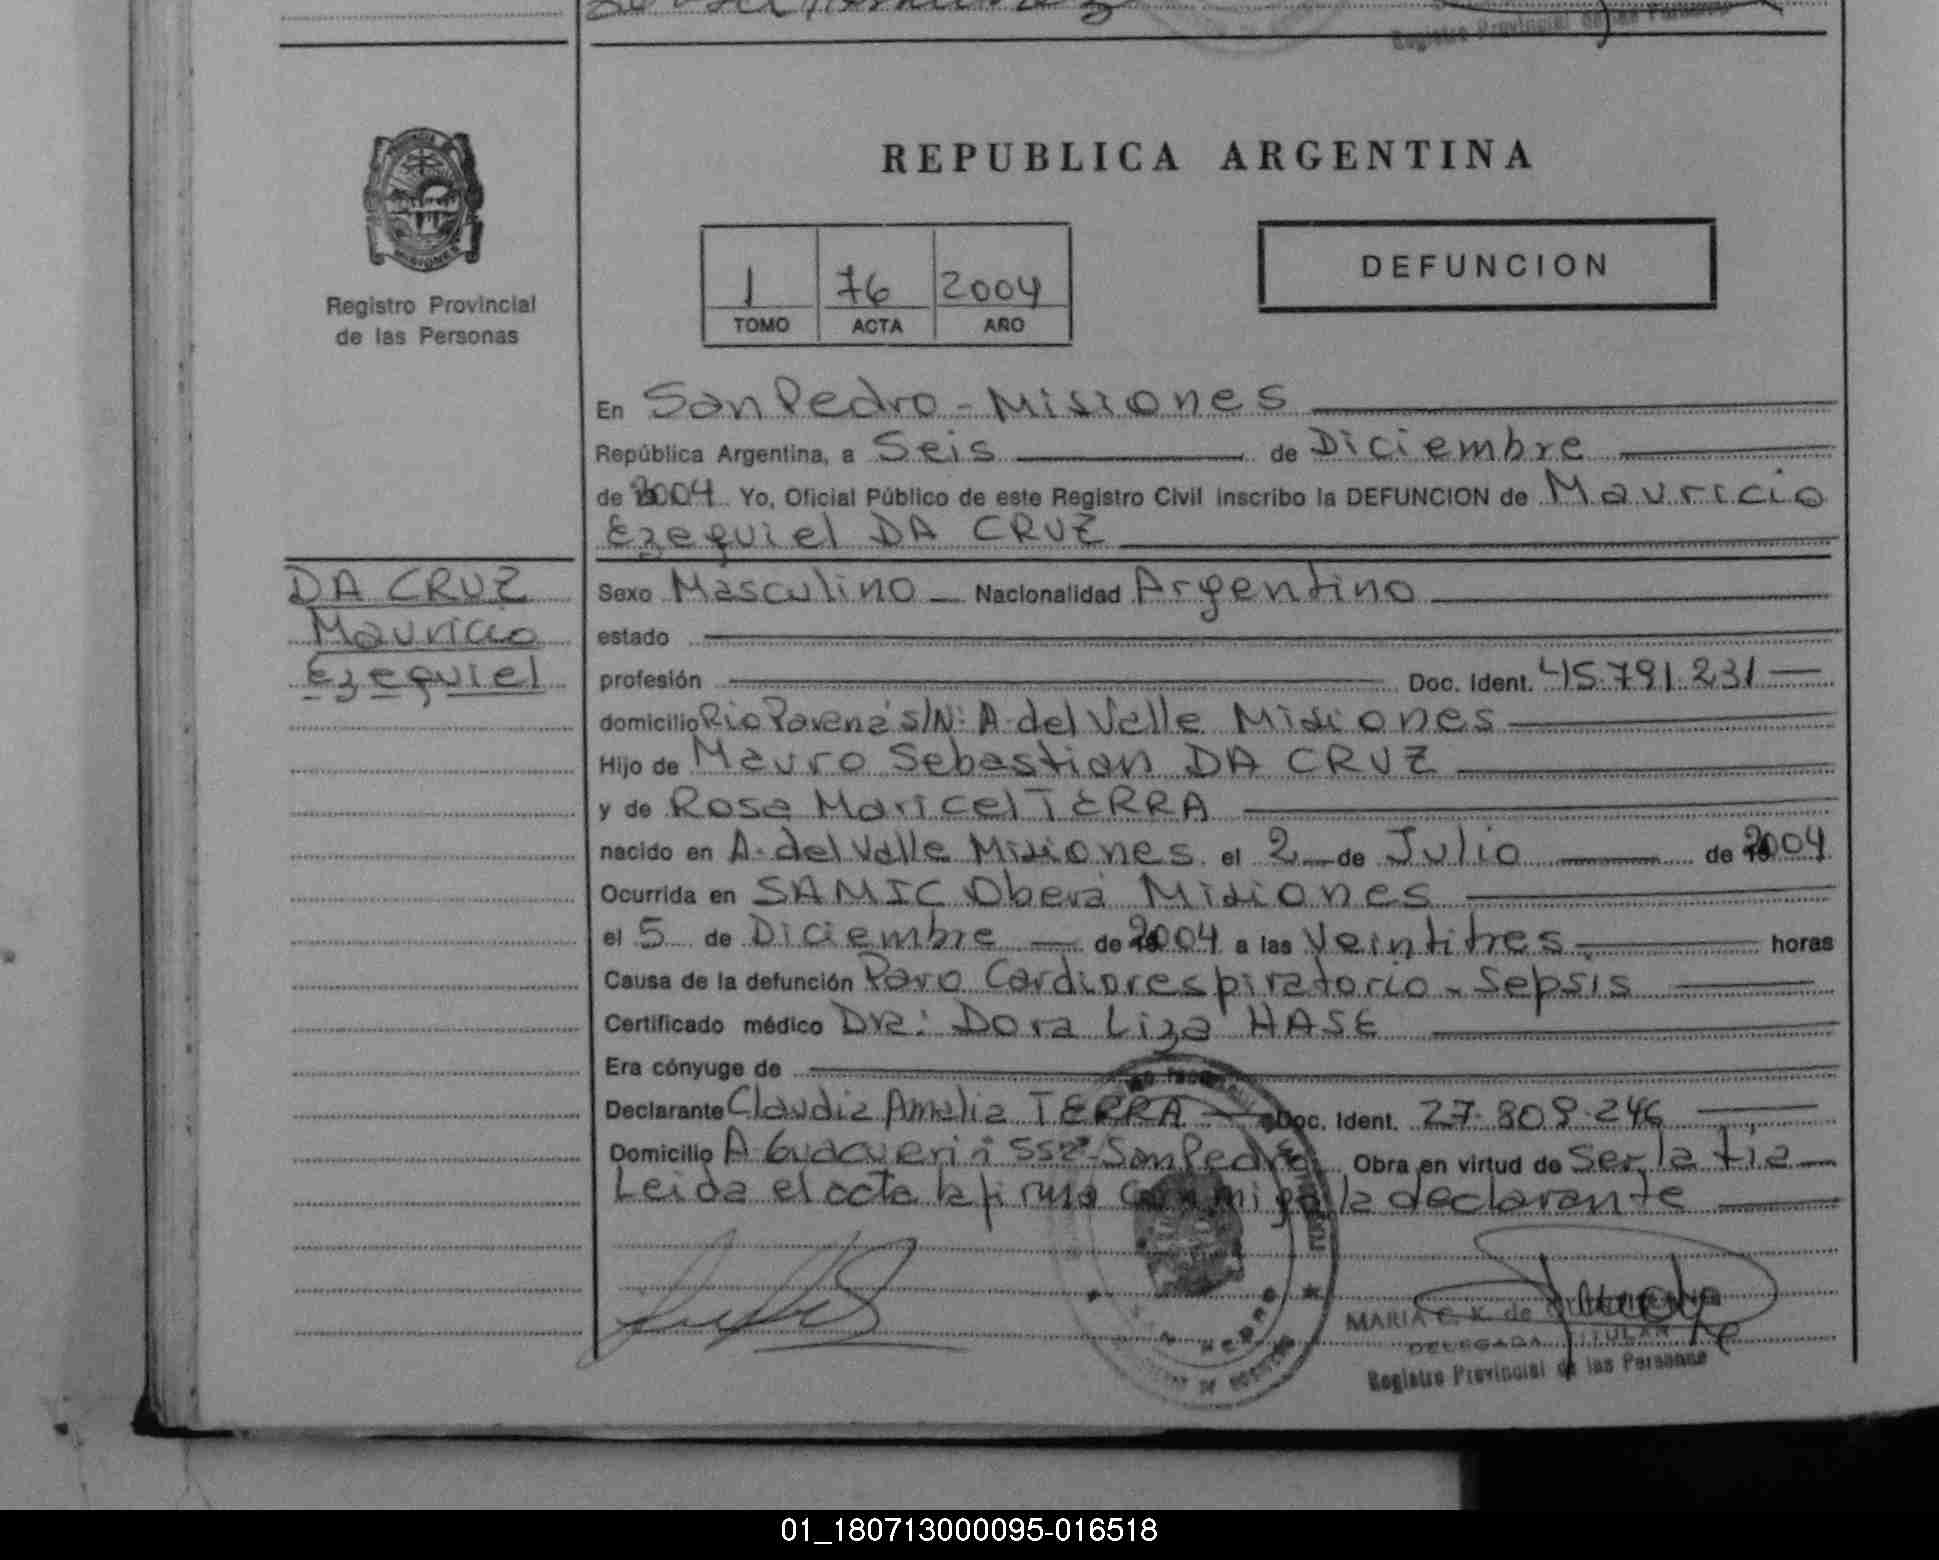 REPUBLICA ARGENTINA
PROVINCIA
MISIONES
Registro Provincial
de las Personas
1 76 2004
TOMO ACTA AÑO
DEFUNCION
En San Pedro - Misiones
República Argentina, a Seis de Diciembre
de 2004 Yo, Oficial Público de este Registro Civil inscribo la DEFUNCION de Mauricio
Ezequiel DA CRUZ
DA CRUZ
Mauricio
Ezequiel
Sexo Masculino Nacionalidad Argentino
estado
profesión Doc. Ident. 45.791.231
domicilio Rio Parená S/Nº A. del Valle Misiones
Hijo de Mauro Sebastian DA CRUZ
y de Rosa Maricel TERRA
nacido en A. del Valle Misiones el 2 de Julio de 2004
Ocurrida en SAMIC Oberá Misiones
el 5 de Diciembre de 2004 a las Veintitres horas
Causa de la defunción Paro Cardiorespiratorio - Sepsis
Certificado médico Dra: Dora Liza HASE
Era cónyuge de
Declarante Claudia Amalia TERRA Doc. Ident. 27.809.246
Domicilio A Guacurari i 552 - San Pedro Obra en virtud de Ser la tia
Leida el acta la firma conmigo la declarante
MARIA C. K. de
DELEGADA TITULAR
Registro Provincial de las Personas
Registro Provincial de las Personas
SAN PEDRO
01_180713000095-016518